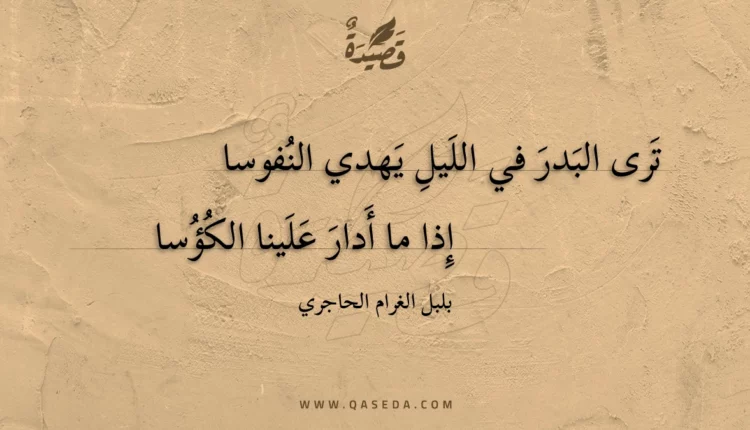 قَصِيْدَةٌ
تَرى البَدرَ في اللَيلِ يَهدي النُفوسا
إِذا ما أَدارَ عَلَينا الكُؤُسا
بلبل الغرام الحاجري
WWW.QASEDA.COM